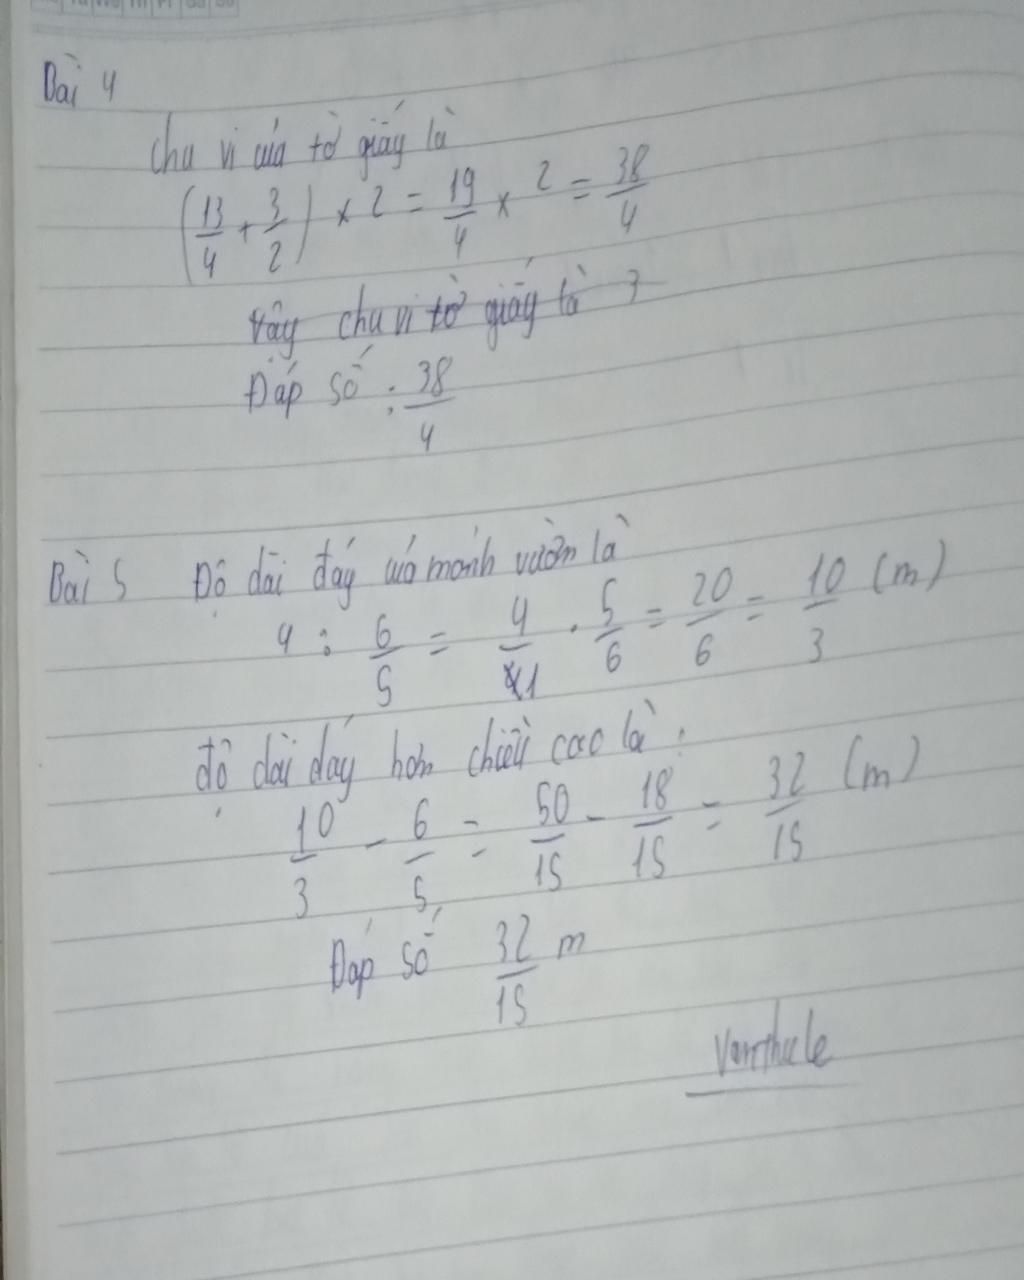 Bài 4
Chu vi của tờ giấy là
(13/4 + 3/2) × 2 = 19/4 × 2 = 38/4
Vậy chu vi tờ giấy là 3
Đáp số : 38/4
Bài 5 Độ dài đáy của mảnh vườn là
4 : 6/5 = 4/1 . 5/6 = 20/6 = 10/3 (m)
độ dài đáy hơn chiều cao là :
10/3 - 6/5 = 50/15 - 18/15 = 32/15 (m)
Đáp số 32/15 m